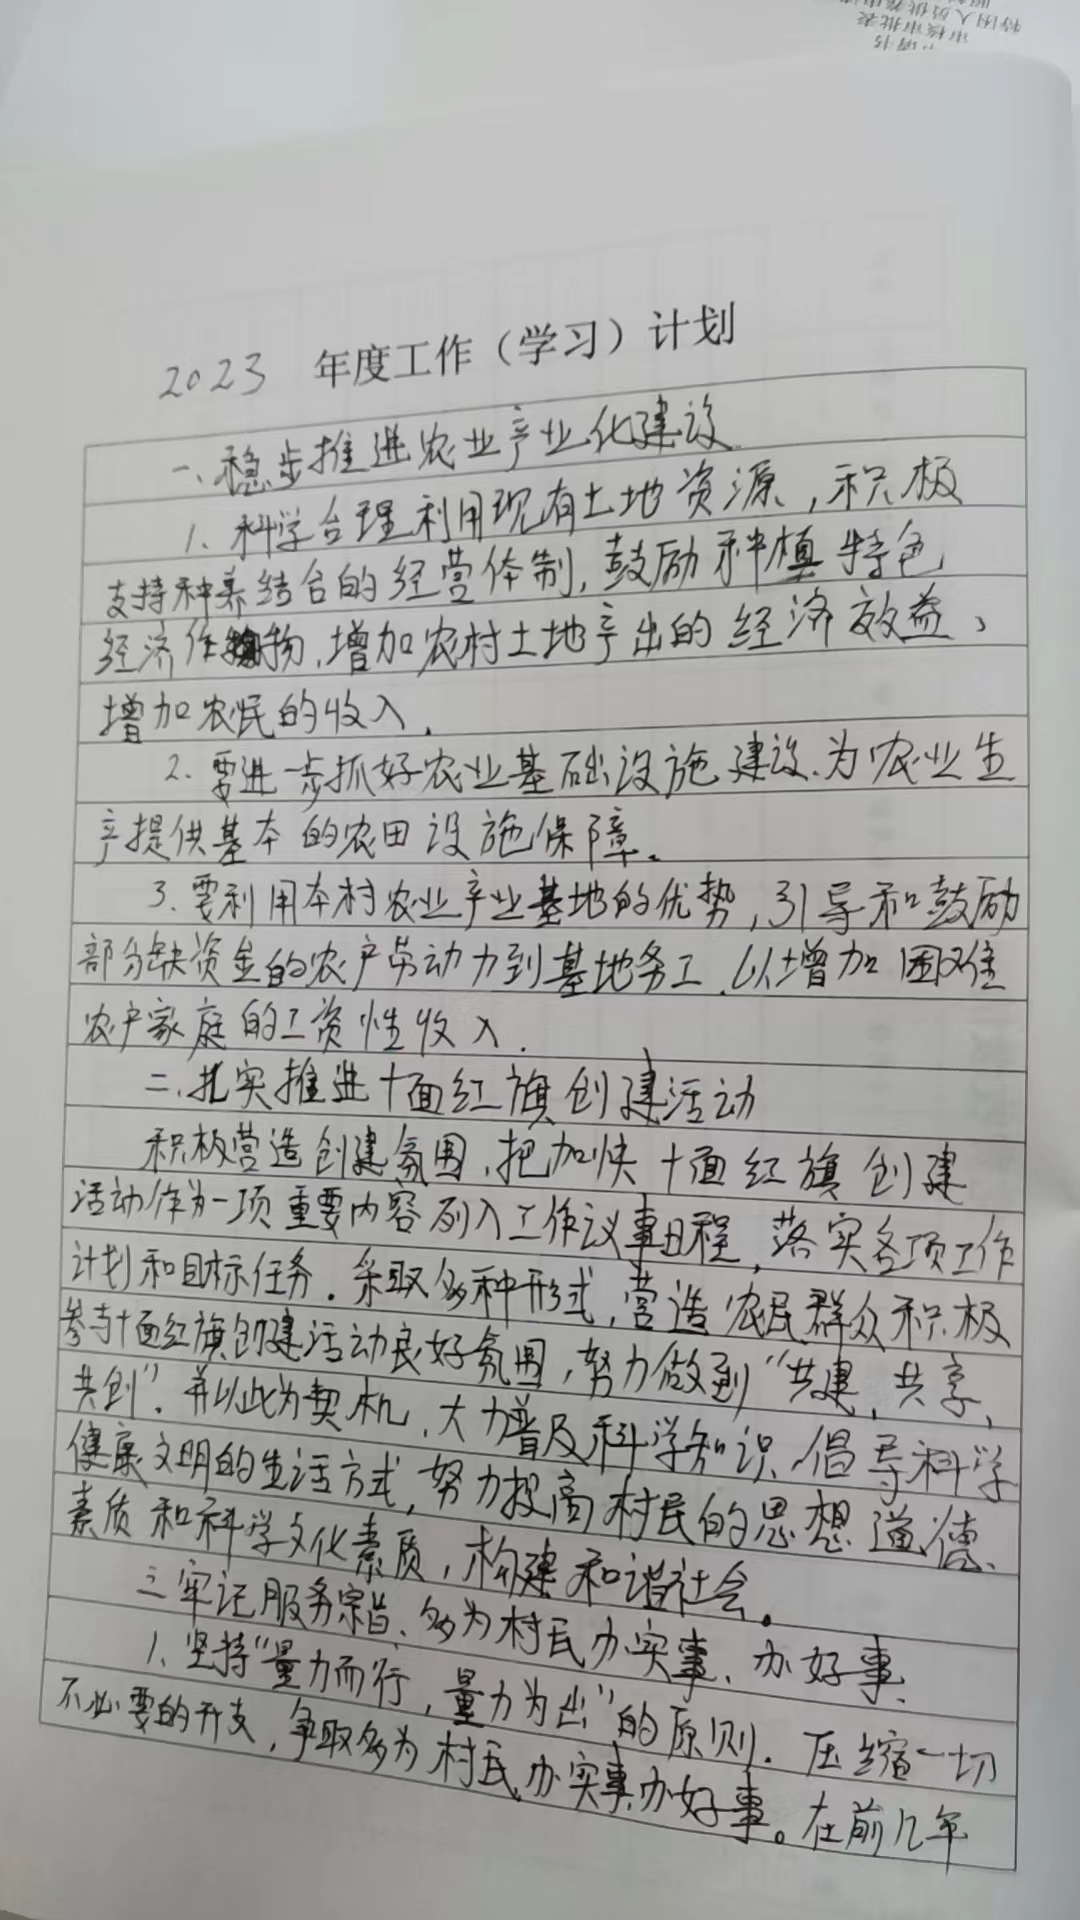 2023 年度工作（学习）计划
一、稳步推进农业产业化建设
1、科学合理利用现有土地资源，积极
支持种养结合的经营体制，鼓励种植特色
经济作物，增加农村土地产出的经济效益、
增加农民的收入.
2、要进一步抓好农业基础设施建设、为农业生
产提供基本的农田设施保障。
3、要利用本村农业产业基地的优势，引导和鼓励
部分缺资金的农户劳动力到基地务工、以增加困难
农户家庭的工资性收入.
二、扎实推进十面红旗创建活动
积极营造创建氛围，把加快十面红旗创建
活动作为一项重要内容列入工作议事日程，落实各项工作
计划和目标任务. 采取多种形式，营造农民群众积极
参与十面红旗创建活动良好氛围，努力做到“共建，共享，
共创”. 并以此为契机，大力普及科学知识、倡导科学
健康文明的生活方式，努力提高村民的思想道德、
素质和科学文化素质，构建和谐社会。
三牢记服务宗旨、多为村民办实事、办好事、
1、坚持“量力而行，量力为出”的原则. 压缩一切
不必要的开支，争取多为村民、办实事、办好事。在前几年